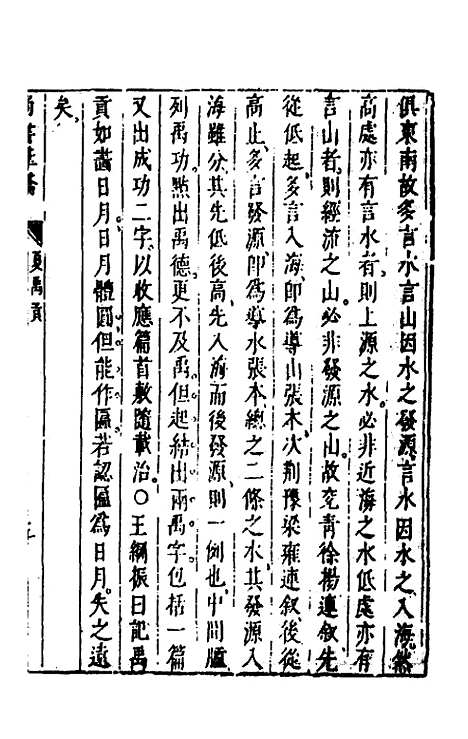 俱東南故多言水言山因水之發源言水因水之入海然
高處亦有言水者則上源之水必非近海之水低處亦有
言山者則經流之山必非發源之山故兗青徐揚連叙先
從低起多言入海即為導山張本次荆豫梁雍連叙後從
高止多言發源即為導水張本總之二條之水其發源入
海雖分其先低後高先入海而後發源則一例也中間臚
列禹功點出禹德更不及禹但起結出兩禹字包括一篇
又出成功二字以收應篇首敷隨載治〇王綱振曰記禹
貢如畵日月日月體圓但能作匾若認匾為日月失之遠
矣
夏禹貢